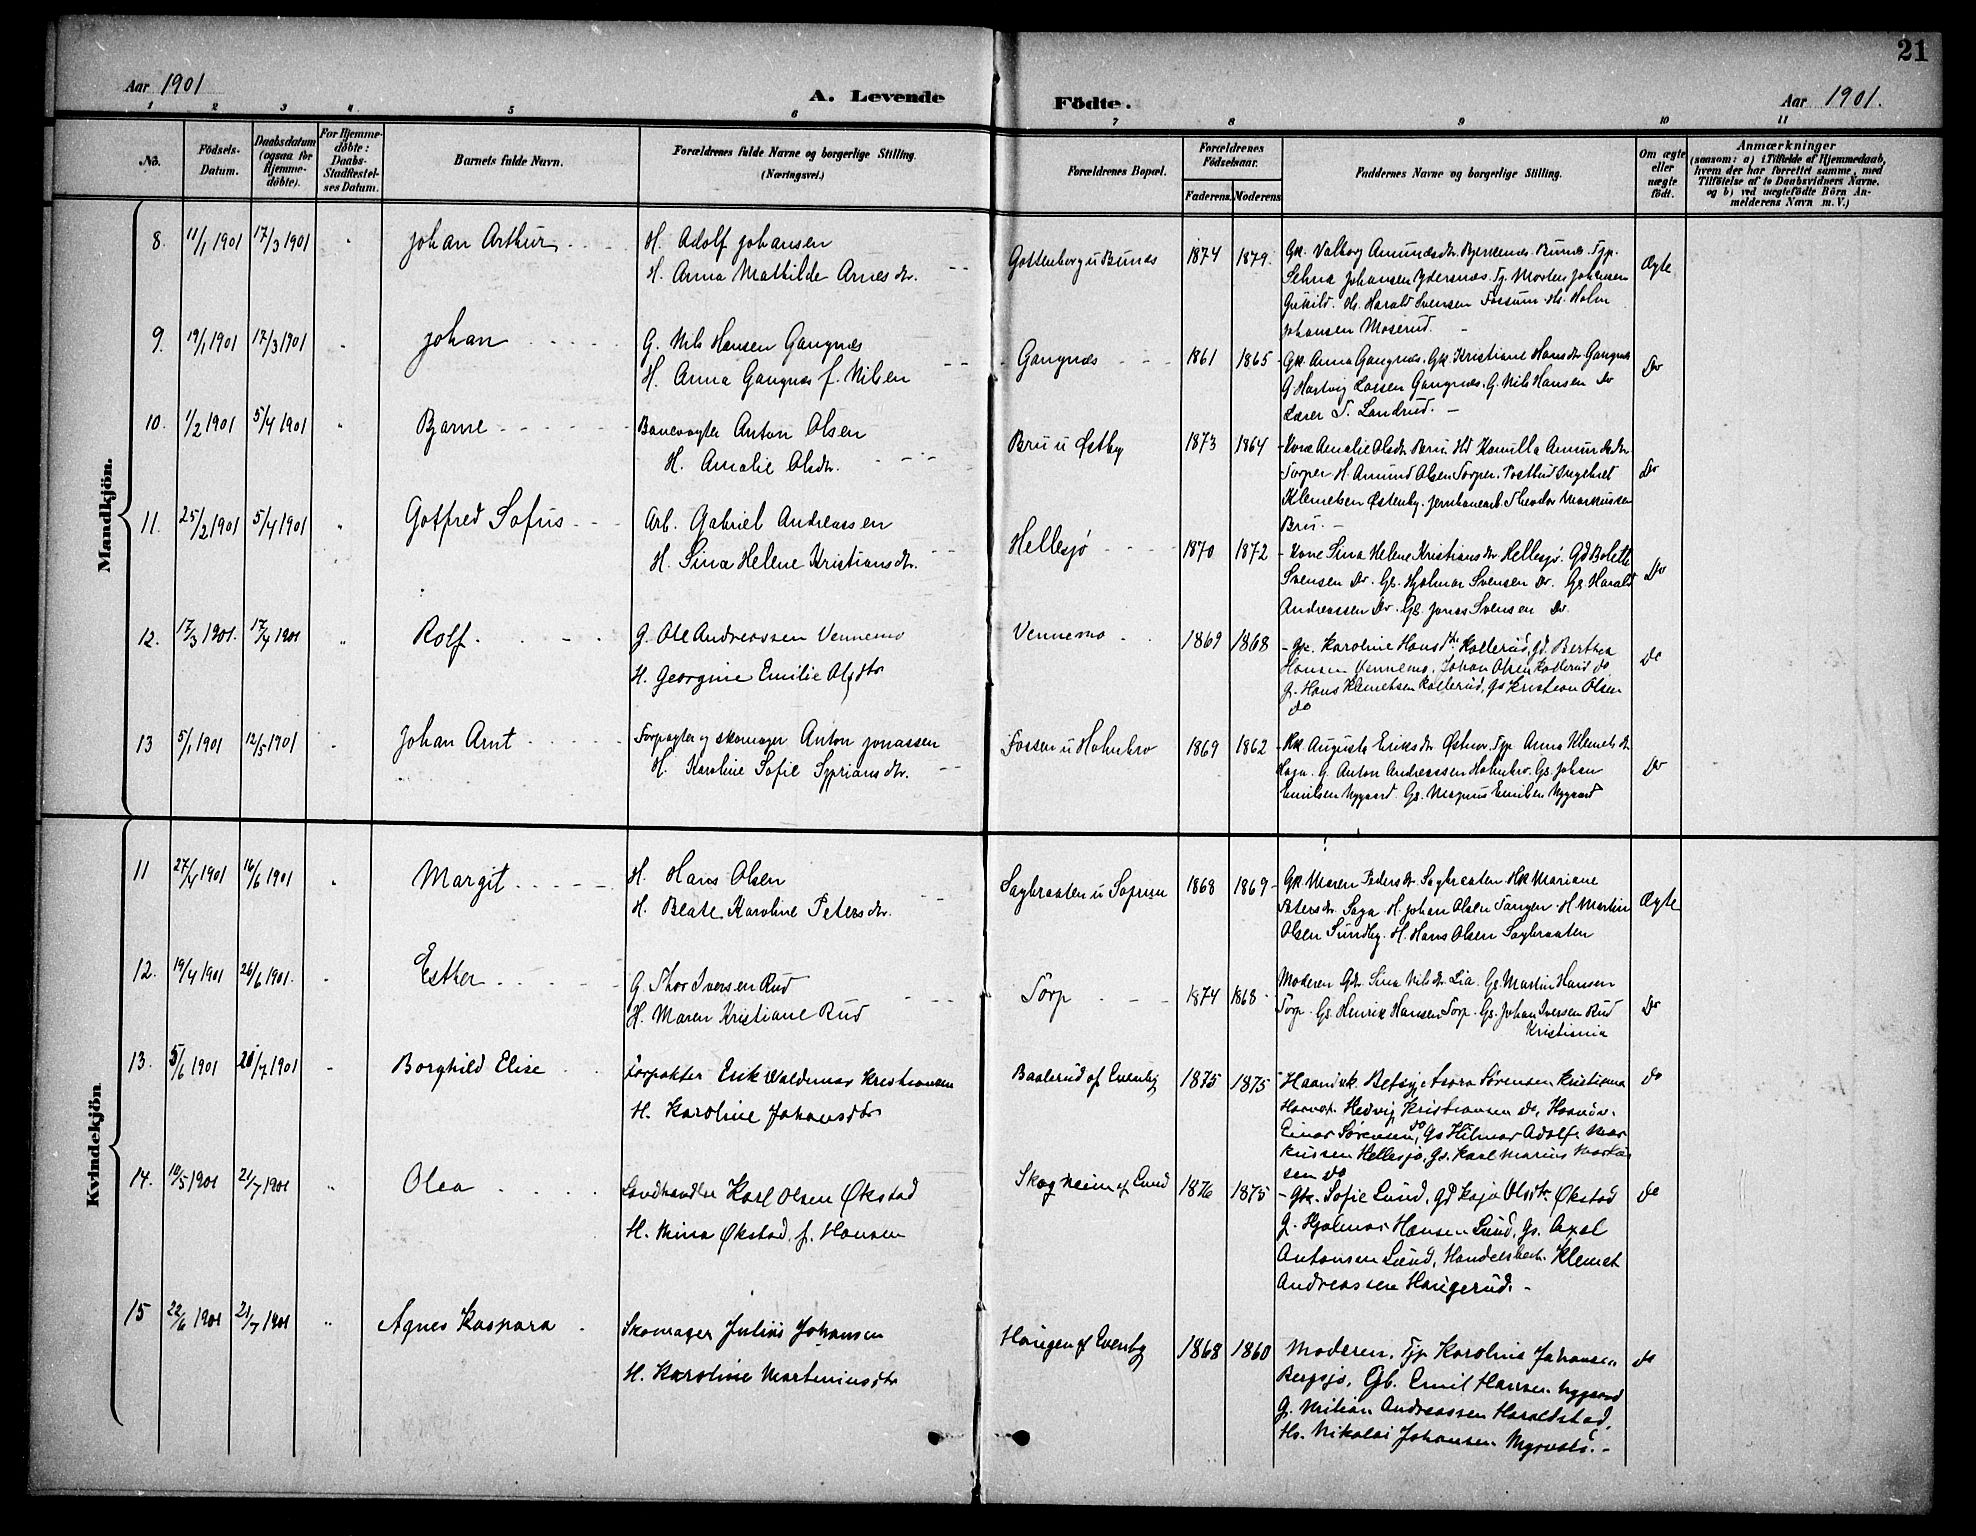 21
Aar 1901
A. Levende
Födte.
Aar 1901.
1 2 3 4 5 6 7 8 9 10 11
No.
Födsels-
Datum.
Daabsdatum
(ogsaa for
Hjemme-
döbte).
For Hjemme-
döbte:
Daabs-
Stadfæstel-
ses Datum.
Barnets fulde Navn.
Forældrenes fulde Navne og borgerlige Stilling.
(Næringsvei.)
Forældrenes Bopæl.
Forældrenes
Födselsaar.
Faderens.
Moderens.
Faddernes Navne og borgerlige Stilling.
Om ægte
eller
uægte
födt.
Anmærkninger
(saasom: a) i Tilfælde af Hjemmedaab,
hvem der har forrettet samme, med
Tilföielse af to Daabsvidners Navne.
og b) ved uægtefödte Börn An-
melderens Navn m. V.)
Mandkjön.
8. 11/1 1901 17/3 1901 " Johan Arthur
H. Adolf Johansen
H. Anna Mathilde Arnesdtr.
Gottenborg u Bunæs 1874 1879.
Gk. Valborg Amundsdtr. Bjerkenæs Bunæs. Tjp.
Selma Johansen Ydersnæs. Tj. Morten Johansen
Hs. Harald Svensen Fossum. Hs. Holm
Johansen Moserud.
Ægte
9. 19/1 1901 17/3 1901 " Johan
G. Nils Hansen Gangnæs
H. Anna Gangnæs f. Nilsen
Gangnæs 1861 1865
Gk. Anna Gangnæs. Gk. Kristiane Hansdtr Gangnæs
G. Hartvig Larsen Gangnæs. G. Nils Hansen Do
Lærer T. Landrud.
Do
10. 1/2 1901 5/4 1901 " Bjarne
Banevogter Anton Olsen
H. Amalie Olsdtr.
Bru u Østby 1873 1864
Kone Amalie Olsdtr Bru. Kamilla Amundsdtr
Torper. H. Amund Olsen Torper. Postbud Ingebret
Klemetsen Østenby. Jernbanearb. Theodor Markussen
Bru.
Do
11. 25/2 1901 5/4 1901 " Gotfred Sofus
Arb. Gabriel Andreassen
H. Sina Helene Kristiansdtr.
Hellesjø 1870 1872
Kone Sina Helene Kristiansdtr Hellesjø. Gd Bolette
Svensen Do. Gs. Hjalmar Svensen Do. Gs. Harald
Andreassen Do. Gs. Jonas Svensen Do.
Do
12. 17/3 1901. 17/4 1901 " Rolf.
G. Ole Andreassen Vennemo
H. Georgine Emilie Olsdtr
Vennemo 1869 1868
Gk. Karoline Hansdtr. Kollerud, Gd. Berthea
Hansen Vennemo, Johan Olsen Kollerud do
G. Hans Klemetsen Kollerud, Gs Kristian Olsen
do
do
13 5/1 1901 12/5 1901 Johan Arnt
Forpagter og skomager Anton Jonassen
H. Karoline Sofie Syprians dtr.
Fossen u Holmbro 1869 1862
Augusta Eriksdtr Østnor. Tjp. Anna Klemetsdtr
Haga. G. Anton Andreassen Holmbro. Gs. Johan
Emilsen Nygaard. Gs. Magnus Emilsen Nygaard
Do
Kvindekjön
11 27/4 1901 16/6 1901 Margit
H. Hans Olsen
H. Beate Karoline Petersdtr.
Sagbraaten u 1868 1869
Gk. Maren Pedersdtr Sagbraaten Hk Mariane
Petersdtr. Saga. H. Johan Olsen Tangen. H Martin
Olsen Sundby. H. Hans Olsen Sagbraaten
Ægte
12. 19/4 1901 26/6 1901. Esther
G. Thor Iversen Rud
H. Maren Kristiane Rud
Torp 1874 1868
Moderen. Gdr. Sina Nilsdtr. Lia. Gs. Martin Hansen
Torp. Gs. Henrik Hansen Torp. Gs. Johan Iversen Rud
Kristiania
Do
13. 5/6 1901 20/7 1901 Borghild Elise
Forpakter Erik Valdemar Kristiansen
H. Karoline Johansdtr
Baalerud af Evenby 1875 1875
Haandvk. Betsy Asora Sørensen Kristiania
Hedvig Kristiansen do,
Einar Sørensen do, Gs Hilmar Adolf Mar
kussen Hellesjø, Gs. Karl Marius Markus
sen do
do
14. 10/5 1901 21/7 1901 " Olea
Landhandler Karl Olsen Økstad
H. Mina Økstad f. Hansen
Skogheim af Lund 1876 1875
Gk. Sofie Lund, Gd Kaja Olsdtr. Økstad
G. Hjalmar Hansen Lund, Gs. Axel
Antonsen Lund, Handelsbetj. Klemet
Andreassen Haugerud.
do
15 22/6 1901 21/7 1901 " Agnes Kaspara
Skomager Julius Johansen
H. Karoline Martiniusdtr
Haugen af Evenby 1868 1860
Moderen, Tjp Karoline Johansen
Bergsjø, Gb. Emil Hansen Nygaard
G. Milian Andreassen Haraldstad,
Hs. Nikolai Johansen Myrvold.
do